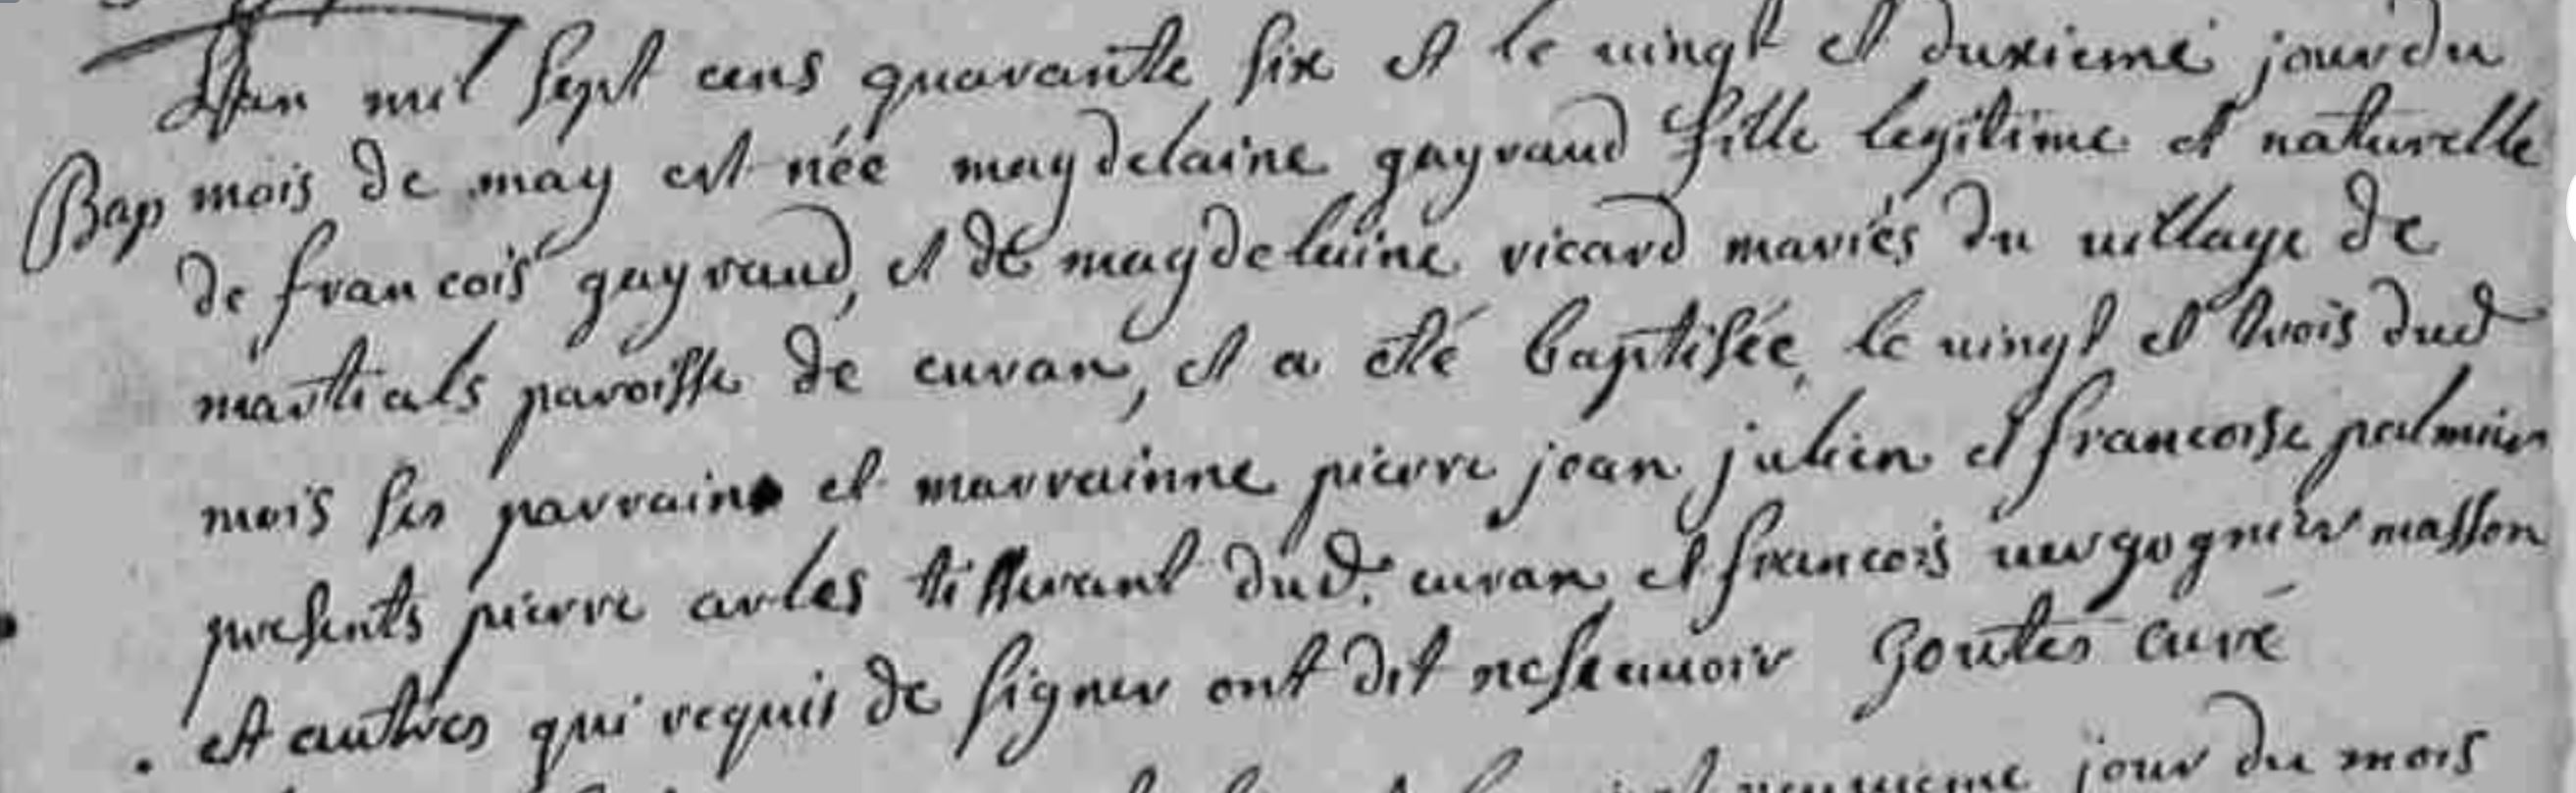 L'an mil sept cens quarante six et le vingt et duxieme jour du
Bap mois de may est née magdelaine gayraud fille legitime et naturelle
de francois gayraud, et de magdelaine ricard mariés du village de
martials paroisse de curan, et a été baptisée le vingt et trois dud
mois ses parrain et marrainne pierre jean julien et francoise palmier
presents pierre arles tisserant dud. curan et francois vergognier masson
et autres qui requis de signer ont dit ne scauoir Goutes curé
jour du mois